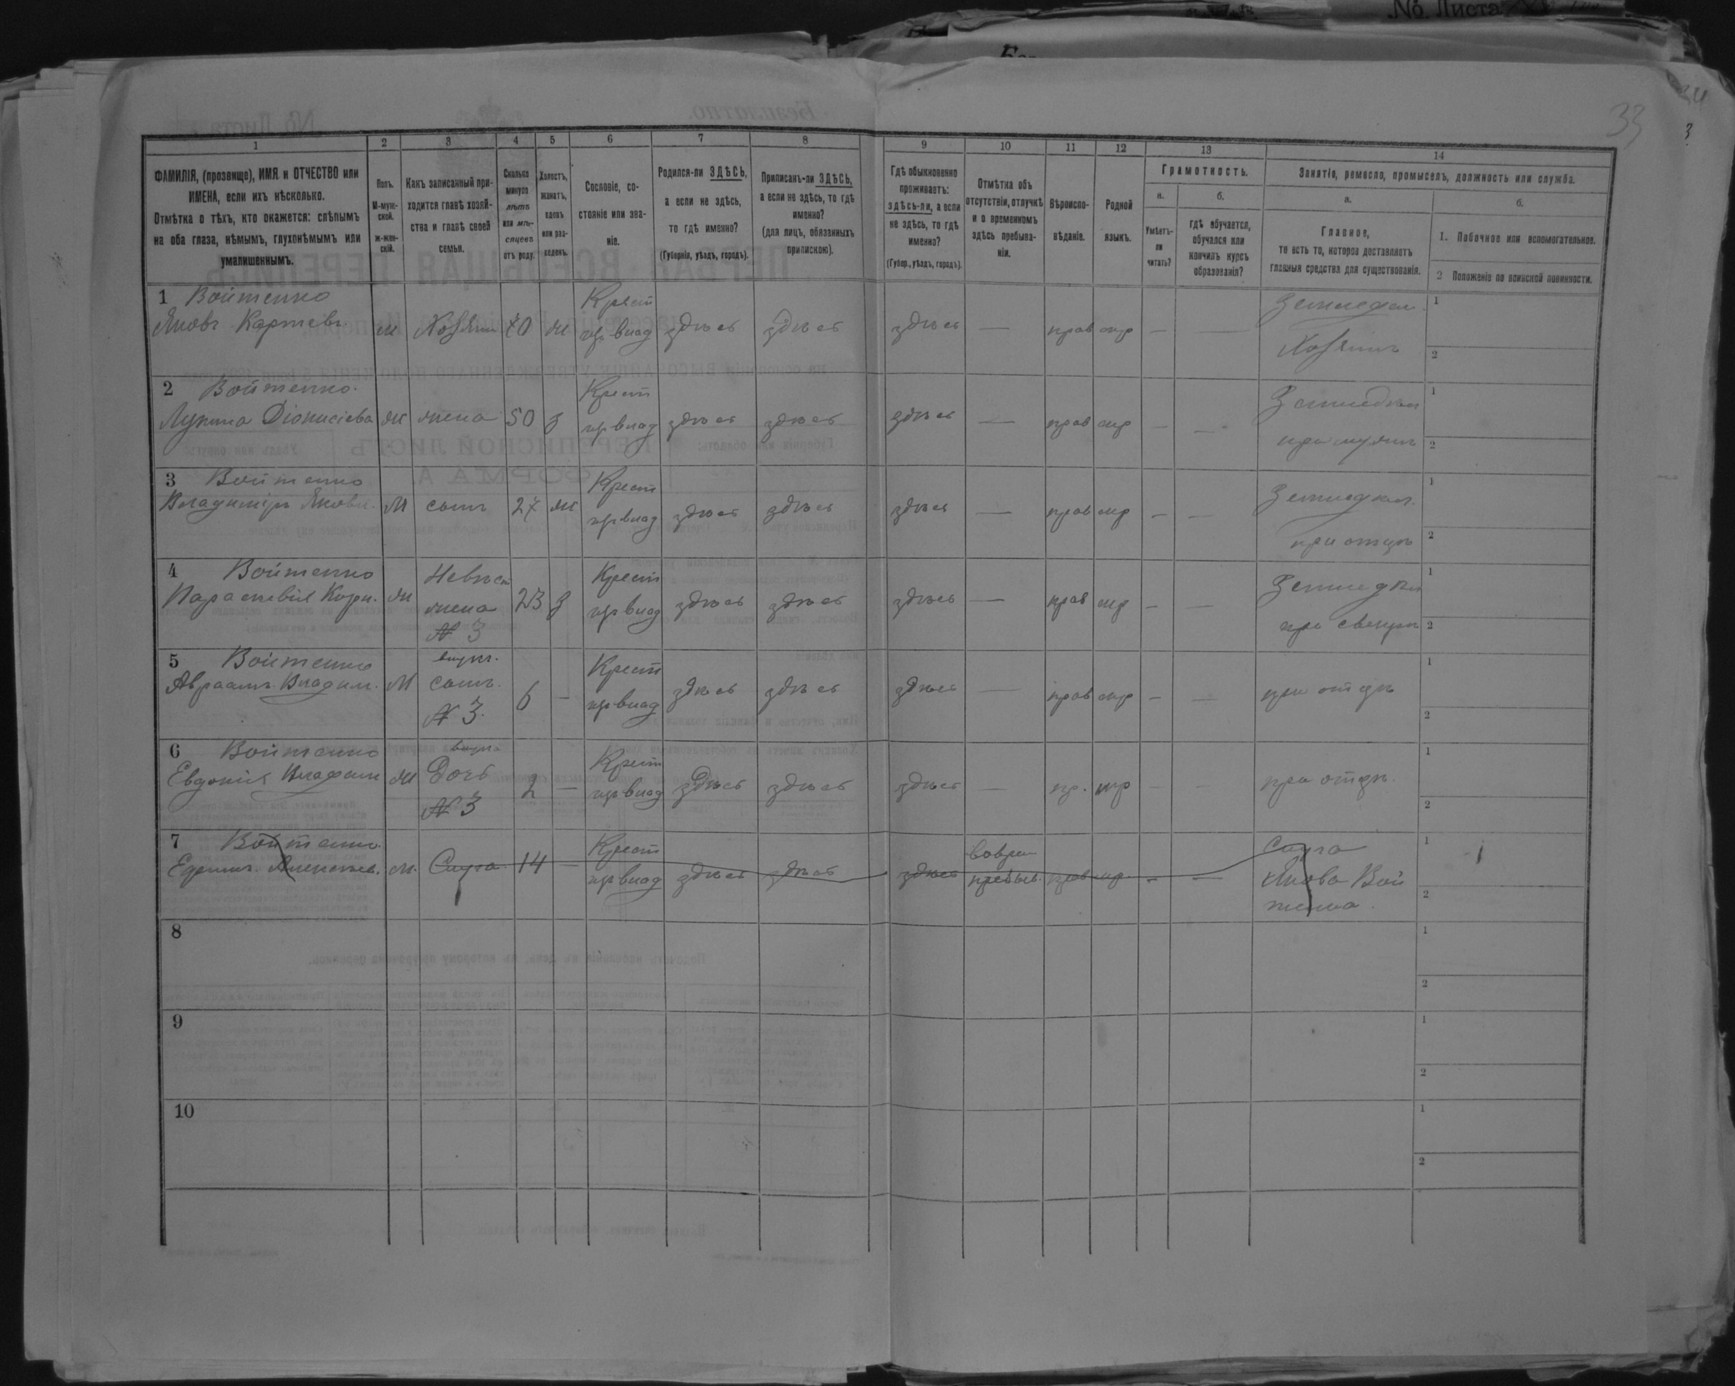 № Листа
33
1
2
3
4
5
6
7
8
9
10
11
12
13
14
ФАМИЛІЯ, (прозвище), ИМЯ и ОТЧЕСТВО или
ИМЕНА, если ихъ нѣсколько.
Отмѣтка о тѣхъ, кто окажется: слѣпымъ
на оба глаза, нѣмымъ, глухонѣмымъ или
умалишеннымъ.
Полъ.
М-муж-
ской.
Ж-жен-
скій.
Какъ записанный при-
ходится главѣ хозяй-
ства и главѣ своей
семьи.
Сколько
минуло
лѣтъ
или мѣ-
сяцевъ
отъ роду.
Холостъ,
женатъ,
вдовъ
или раз-
веденъ.
Сословіе, со-
стояніе или зва-
ніе.
Родился-ли ЗДѢСЬ,
а если не здѣсь,
то гдѣ именно?
(Губернія, уѣздъ, городъ).
Приписанъ-ли ЗДѢСЬ,
а если не здѣсь, то гдѣ
именно?
(для лицъ, обязанныхъ
припискою).
Гдѣ обыкновенно
проживаетъ:
здѣсь-ли, а если
не здѣсь, то гдѣ
именно?
(Губер., уѣздъ, городъ).
Отмѣтка объ
отсутствіи, отлучкѣ
и о временномъ
здѣсь пребыва-
ніи.
Вѣроиспо-
вѣданіе.
Родной
языкъ.
Грамотность.
а.
б.
Умѣетъ-
ли
читать?
гдѣ обучается,
обучался или
кончилъ курсъ
образованія?
Занятіе, ремесло, промыселъ, должность или служба.
а.
б.
Главное,
то есть то, которое доставляетъ
главныя средства для существованія.
1. Побочное или вспомогательное.
2 Положеніе по воинской повинности.
1 Войтенко
Яковъ Карпевъ м Хозяин 70 ж Крест здѣсь здѣсь здѣсь — прав мр — — Земледел
Хозяинъ
1
2
2 Войтенко
Лукина Діонисіева ж жена 50 з Крест здѣсь здѣсь здѣсь — прав мр — — Земледел
при мужѣ
1
2
3 Войтенко
Владимиръ Яковл. М сынъ 27 ж Крест здѣсь здѣсь здѣсь — прав мр — — Земледел.
при отцѣ
1
2
4 Войтенко
Параскевія Корн. ж Невѣст
жена
№ 3 23 з Крест здѣсь здѣсь здѣсь — прав мр — — Земледел
при свекрѣ
1
2
5 Войтенко
Авраамъ Владим. М внук.
сынъ.
№ 3. 6 — Крест здѣсь здѣсь здѣсь — прав мр — — при отцѣ
1
2
6 Войтенко
Евдокія Владим ж внуч
Дочь
№ 3 2 — Крест здѣсь здѣсь здѣсь — пр. мр — — при отцѣ.
1
2
7 Войтенко
Ефимъ м. Слуга 14 — Крест здѣсь здѣсь здѣсь времен
пребыв. прав мр. — — Слуга
Якова Вой
тенка.
1
2
8
1
2
9
1
2
10
1
2